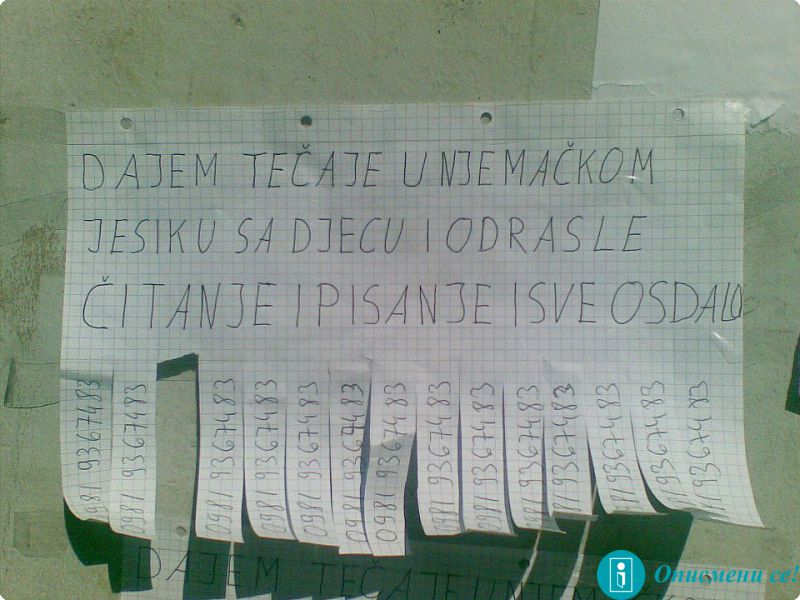 DAJEM TEČAJE U NJEMAČKOM
JESIKU SA DJECU I ODRASLE
ČITANJE I PISANJE I SVE OSDALO
981 9367483
0981 9367483
0981 9367483
0981 9367483
0981 9367483
0981 9367483
0981 9367483
0981 9367483
0981 9367483
0981 9367483
981 9367483
81 9367483
81 9367483
81 9367483
DAJEM TEČAJE U NJEM
Описмени се!